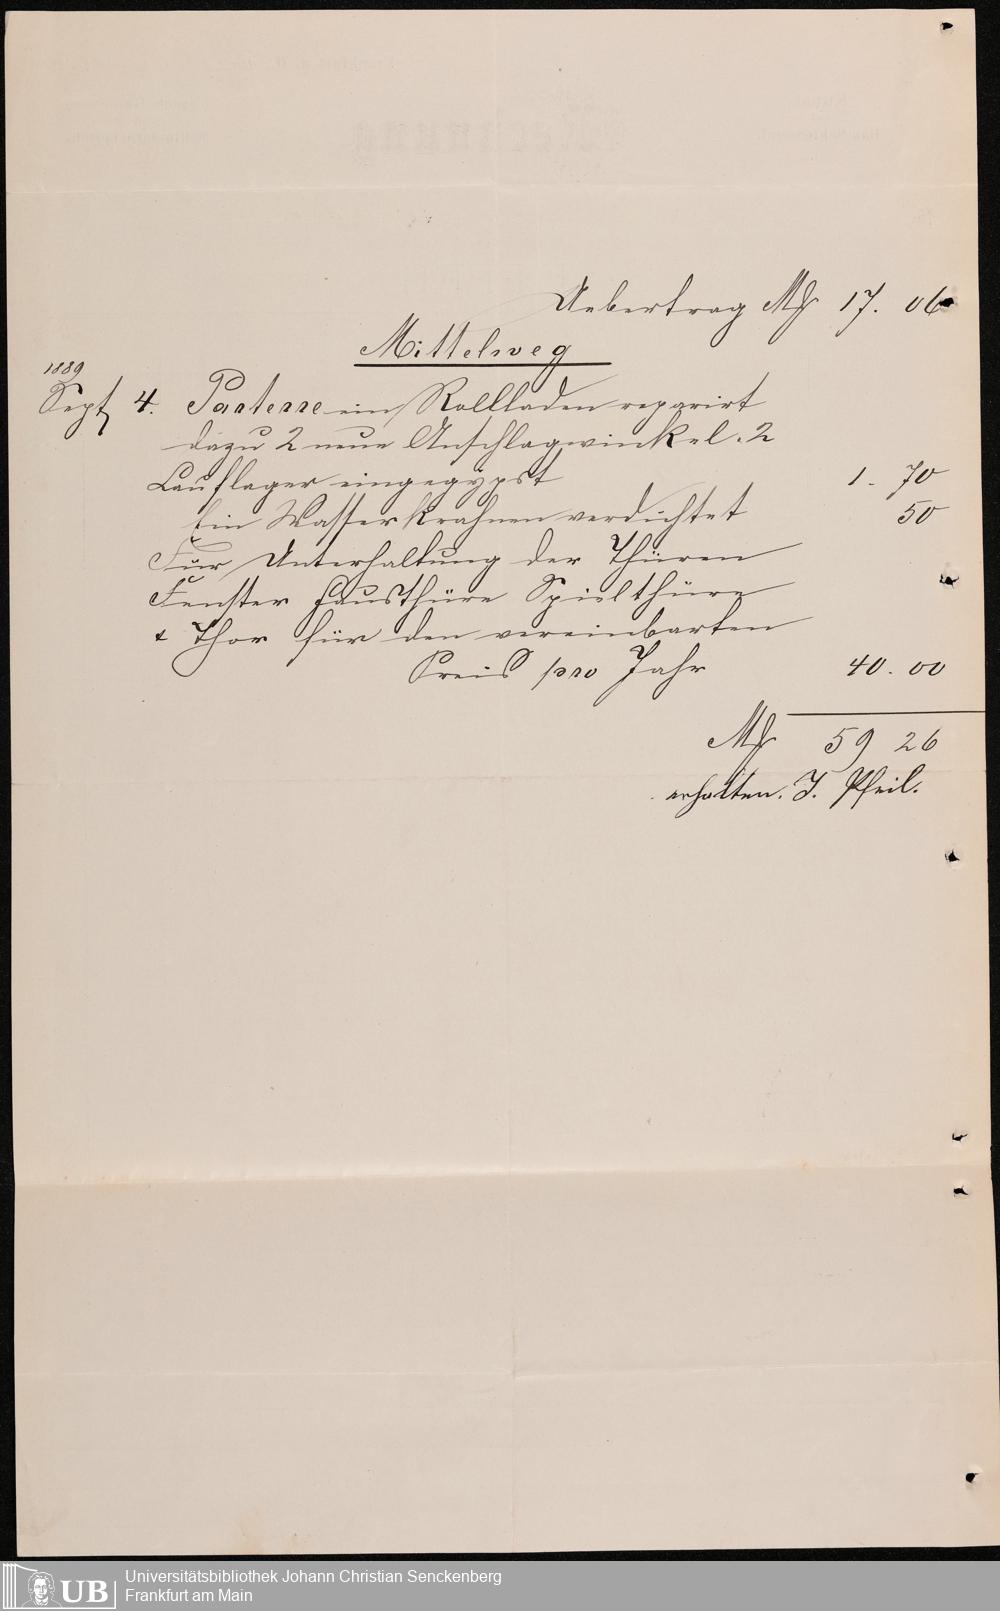 Uebertrag Mk 17. 06
Mittelweg
1889
Sept 4. Parterre ein Rollladen reparirt
dazu 2 neue Anschlagwinkel. 2
Lauflager eingegÿpst 1. 70
Ein Wasserkrahnen verdichtet 50
Für Unterhaltung der Thüren
Fenster Hausthüre Spielthüre
& Thor für den vereinbarten
Preis pro Jahr 40. 00
Mk 59 26
erhalten. J. Pfeil.
UB Universitätsbibliothek Johann Christian Senckenberg
Frankfurt am Main